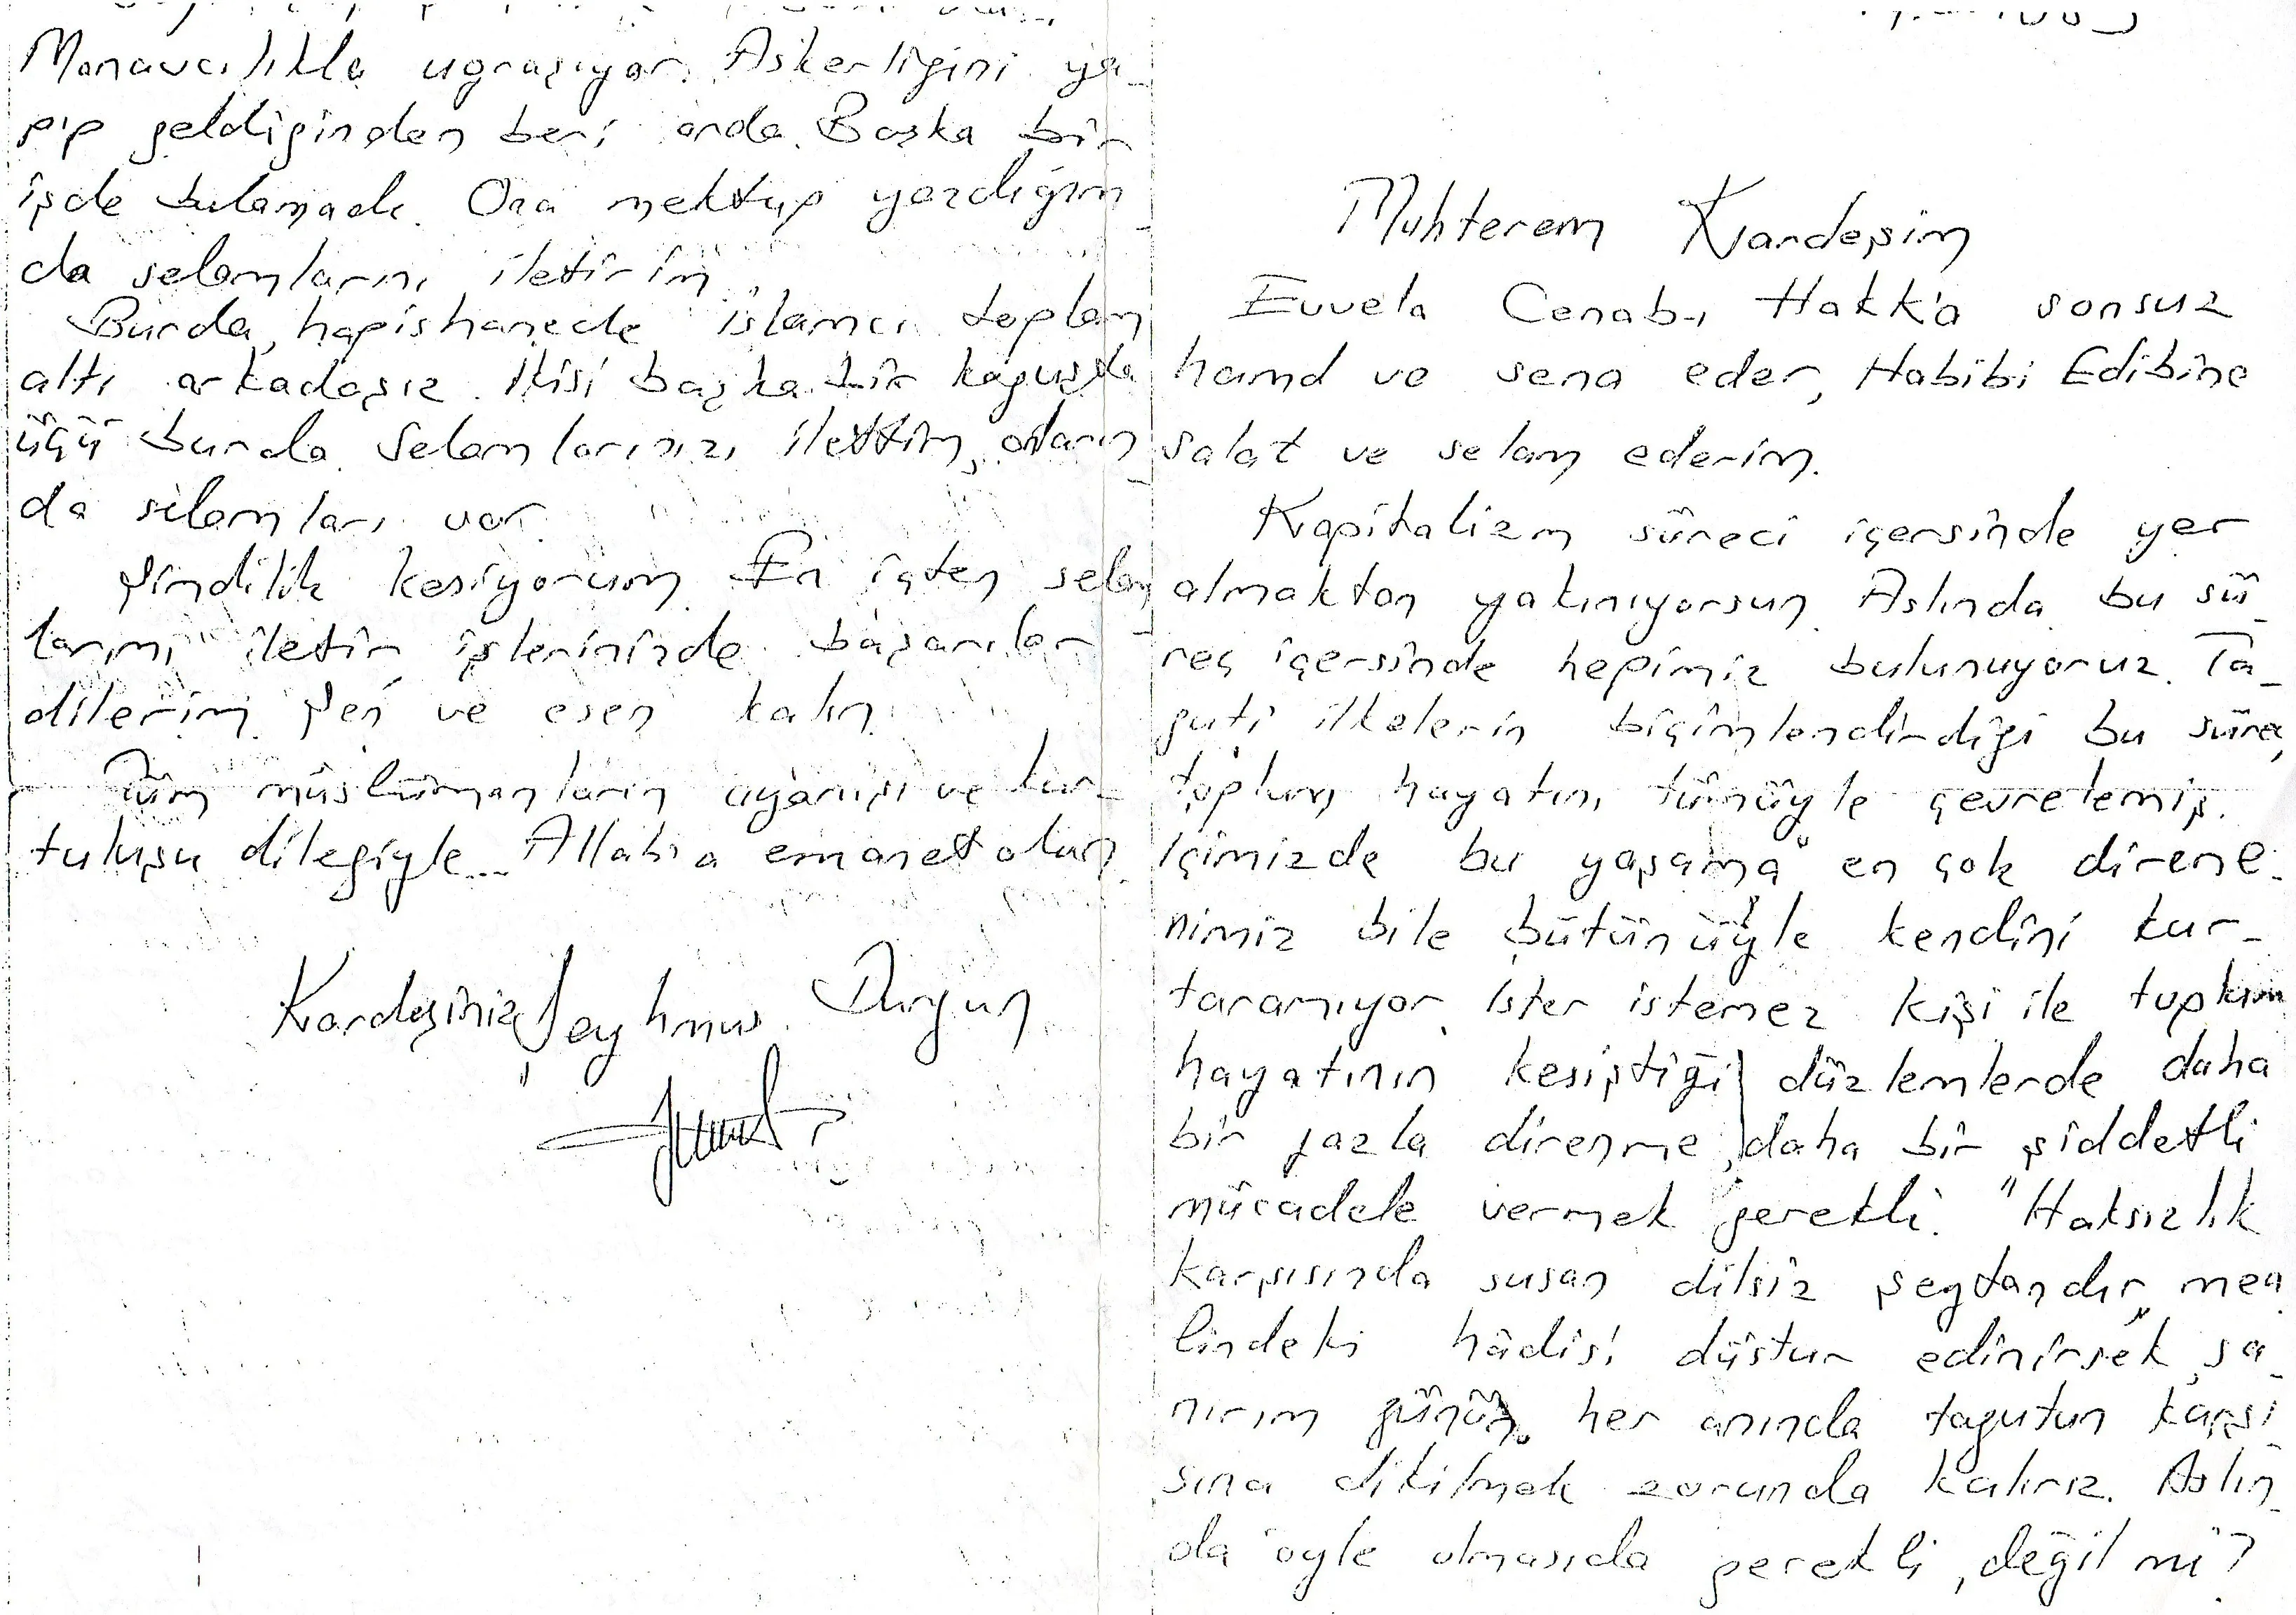 Manavcılıkla uğraşıyor. Askerliğini ya-
pıp geldiğinden beri orda. Başka bir
işde bulamadı. Ona mektup yazdığım-
da selamlarını iletirim.
Burda, hapishanede islamcı toplam
altı arkadaşız. İkisi başka bir koğuşda
üçü burda. Selamlarınızı ilettim, onların
da selamları var.
Şimdilik kesiyorum. En içten selam-
larımı iletir işlerinizde başarılar
dilerim. Şen ve esen kalın.
Tüm müslümanların uyanışı ve kur-
tuluşu dileğiyle... Allah'a emanet olun.
Kardeşiniz, Şeyhmus Durgun
Muhterem Kardeşim
Evvela Cenab-ı Hakk'a sonsuz
hamd ve sena eder, Habibi Edibine
salat ve selam ederim.
Kapitalizm süreci içersinde yer
almaktan yakınıyorsun. Aslında bu sü-
reç içersinde hepimiz bulunuyoruz. Ta-
guti ilkelerin biçimlendirdiği bu süreç,
toplum hayatını tümüyle çevrelemiş.
İçimizde bu yaşama en çok direne-
nimiz bile bütünüyle kendini kur-
taramıyor. İster istemez kişi ile toplum
hayatının kesiştiği düzlemlerde daha
bir fazla direnme, daha bir şiddetli
mücadele vermek gerekli. "Haksızlık
karşısında susan dilsiz şeytandır" mea-
lindeki hadisi düstur edinirsek, sa-
nırım günün her anında tagutun karşı-
sına dikilmek zorunda kalırız. Aslın-
da öyle olmasıda gerekli, değil mi?